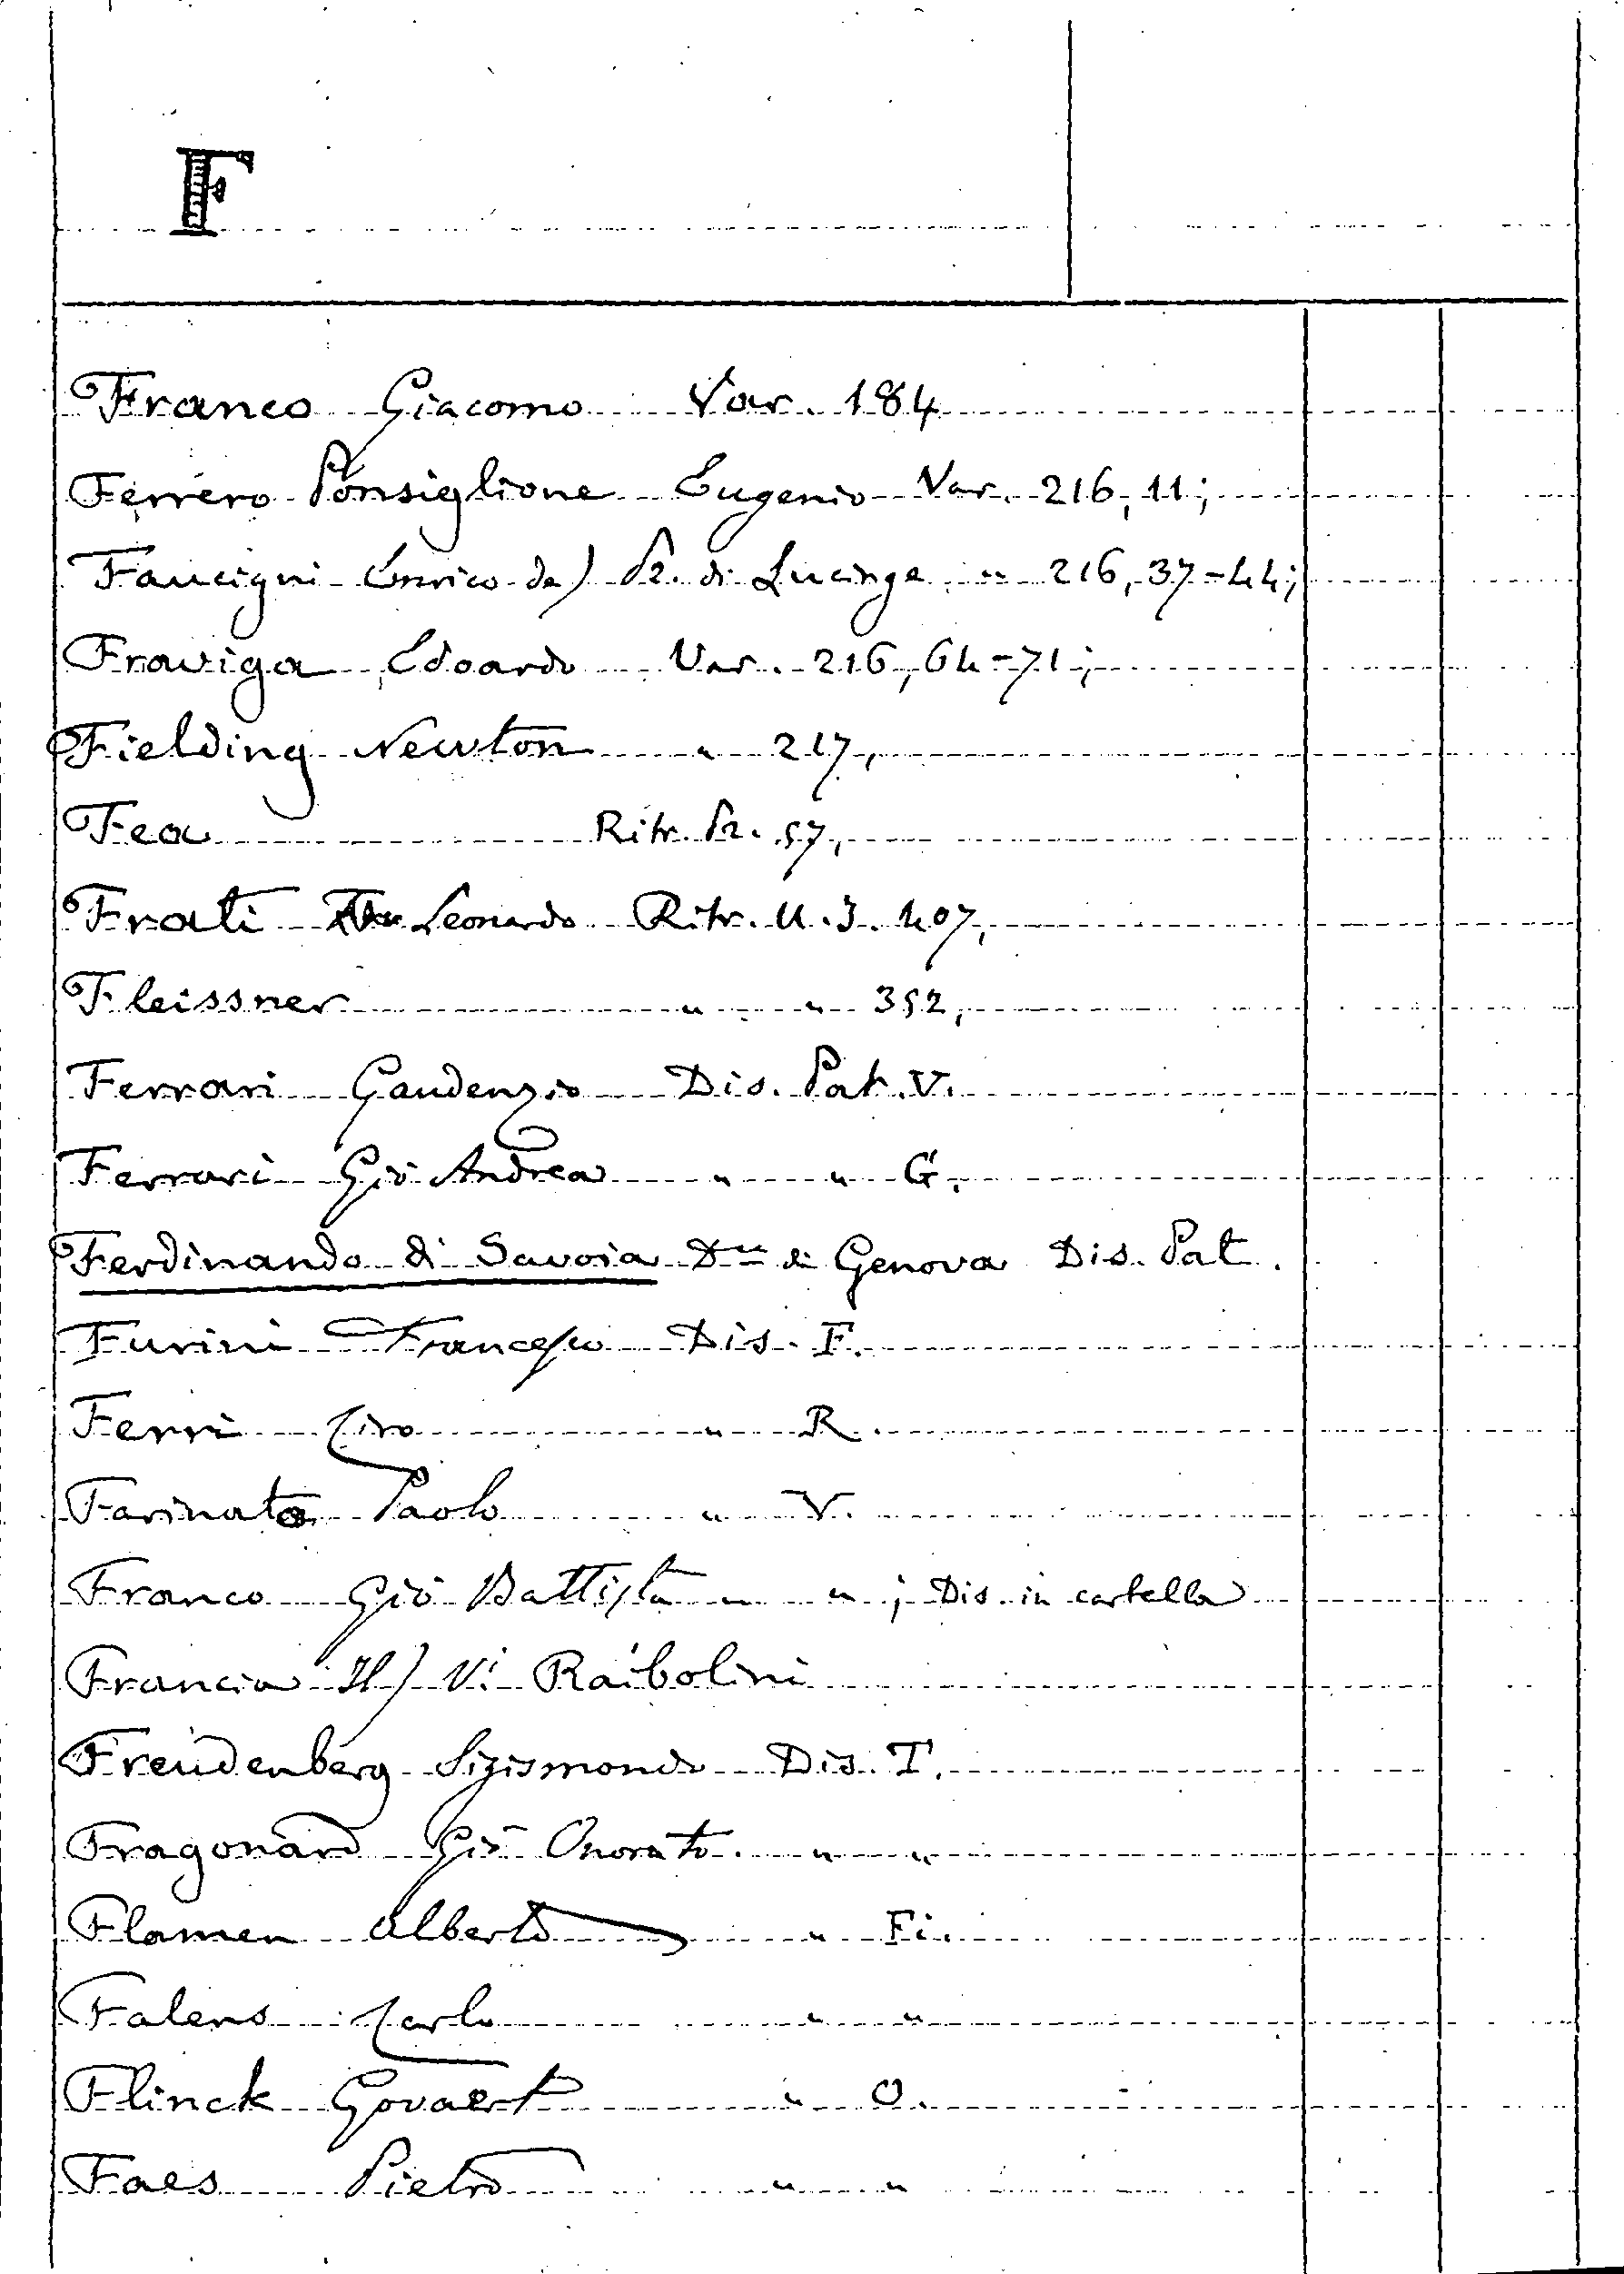 F
Franco Giacomo Var. 184
Ferrero Ponsiglione Eugenio Var. 216, 11;
Faucigni Enrico de) Pr. di Lucinge " 216, 37-44;
Fraviga Edoardo Var. 216, 64-71;
Fielding Newton " 217,
Fea Ritr. Pr. 57,
Frati Leonardo Ritr. U.I. 407,
Fleissner " " 352,
Ferrari Gaudenzio Dis. Pat. V.
Ferrari Gio Andrea " " G.
Ferdinando di Savoia D di Genova Dis. Pat.
Furini Francesco Dis. F.
Ferri Ciro " R.
Farinato Paolo " V.
Franco Gio Battista " " ; Dis. in cartella
Francia Il) V. Raibolini
Freudenberg Sigismondo Dis. T.
Fragonard Gio Onorato " "
Flamen Alberto " Fi.
Falens Carlo " "
Flinck Govaert " O.
Faes Pietro " "